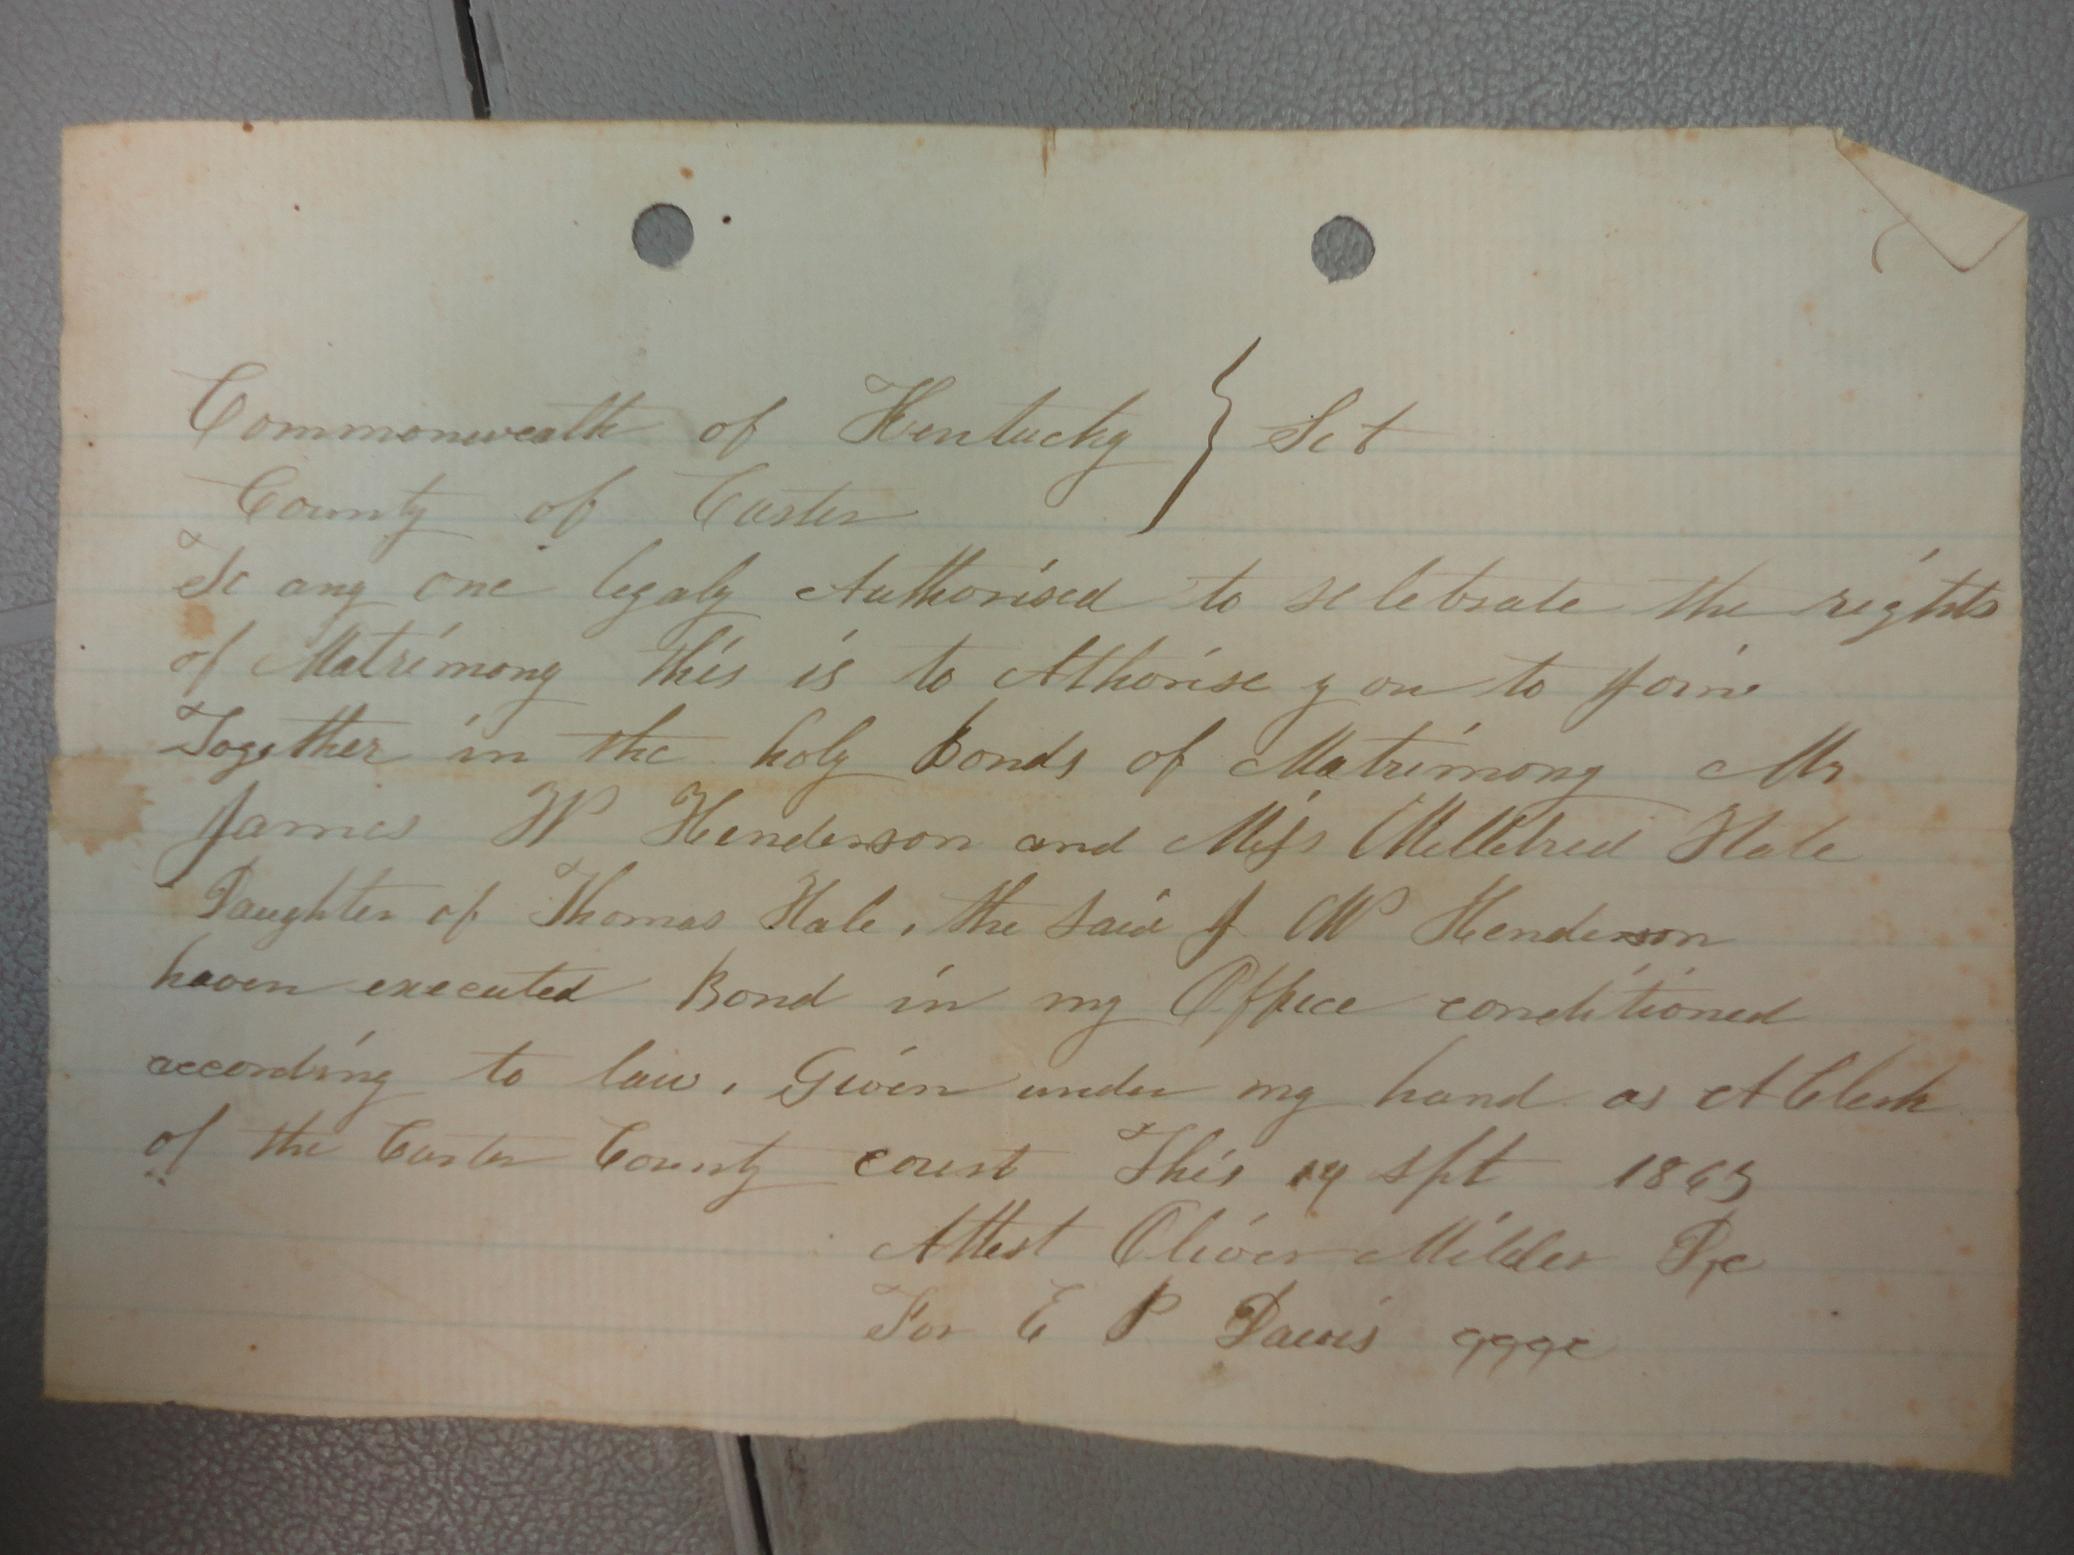 Commonwealth of Kentucky } Sct
County of Carter
To any one legaly Authorised to selebrate the rights
of Matrimony this is to Athorise you to Join
Together in the holy bonds of Matrimony Mr
James W Henderson and Miss Milldred Hale
Daughter of Thomas Hale, the said J W Henderson
haven executed Bond in my Office conditioned
according to law. Given under my hand as A Clerk
of the Carter County court This 14 Spt 1863
Attest Oliver
For E P Davis